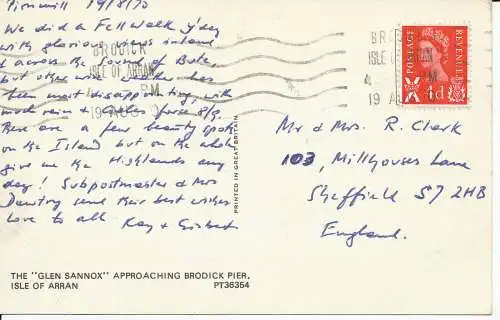 19/8/70
We did a Fell walk y'day
with glorious views inland
& across the Sound of Bute,
but otherwise weather has
been most disappointing, with
much rain & Gales force 8/9.
There are a few beauty spots
on the Island but on the whole
give me the Highlands any
day! Subpostmaster & Mrs
send their best wishes
Love to all Kay &
BRODICK
ISLE OF ARRAN
PM
19 AUG
POSTAGE
REVENUE
4d
Mr & Mrs. R. Clark
103, Millhouses Lane
Sheffield S7 2HB
England.
PRINTED IN GREAT BRITAIN
THE "GLEN SANNOX" APPROACHING BRODICK PIER,
ISLE OF ARRAN
PT36354